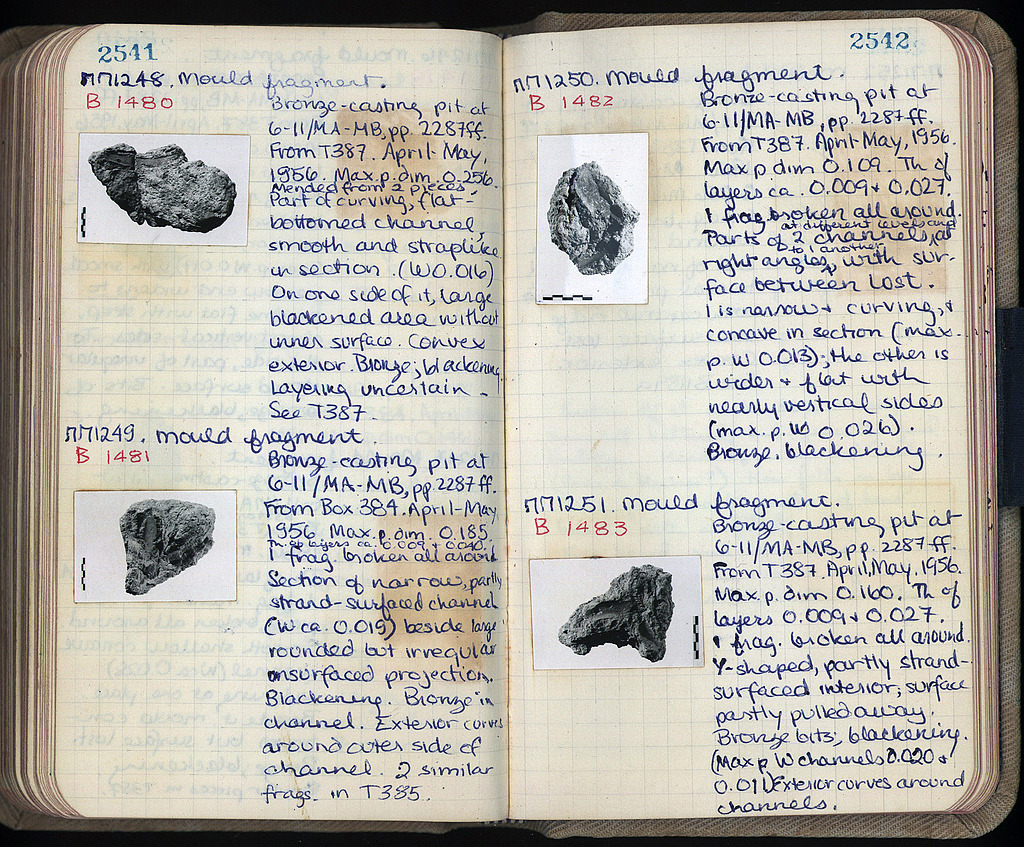 2541
ΠΠ1248. Mould fragment.
B 1480
Bronze-casting pit at
6-11/MA-MB, pp. 2287ff.
From T387. April-May,
1956. Max. p. dim. 0.256.
Mended from 2 pieces.
Part of curving, flat-
bottomed channel,
smooth and straplike
in section. (W 0.016)
On one side of it, large
blackened area without
inner surface. Convex
exterior. Bronze; blackening.
Layering uncertain.
See T387.
ΠΠ1249. Mould fragment.
B 1481
Bronze-casting pit at
6-11/MA-MB, pp. 2287ff.
From Box 384. April-May
1956. Max. p. dim. 0.185.
Th. of layers ca. 0.009 + 0.040.
1 frag. broken all around
Section of narrow, partly
strand-surfaced channel
(W ca. 0.019) beside large
rounded but irregular
unsurfaced projection.
Blackening. Bronze in
channel. Exterior curves
around outer side of
channel. 2 similar
frags. in T385.
2542
ΠΠ1250. Mould fragment.
B 1482
Bronze-casting pit at
6-11/MA-MB, pp. 2287ff.
From T387. April-May, 1956.
Max p. dim 0.109. Th. of
layers ca. 0.009 + 0.027.
1 frag. broken all around.
at different levels and
Parts of 2 channels, at
to another
right angles, with sur-
face between lost.
1 is narrow + curving, +
concave in section (max.
p. W 0.013); the other is
wider + flat with
nearly vertical sides
(max. p. W 0.026).
Bronze. blackening.
ΠΠ1251. Mould fragment.
B 1483
Bronze-casting pit at
6-11/MA-MB, pp. 2287ff.
From T387. April, May, 1956.
Max. p. dim 0.160. Th of
layers 0.009 + 0.027.
1 frag. broken all around.
Y-shaped, partly strand-
surfaced interior; surface
partly pulled away.
Bronze bits; blackening.
(Max p W channels 0.020 +
0.011) Exterior curves around
channels.